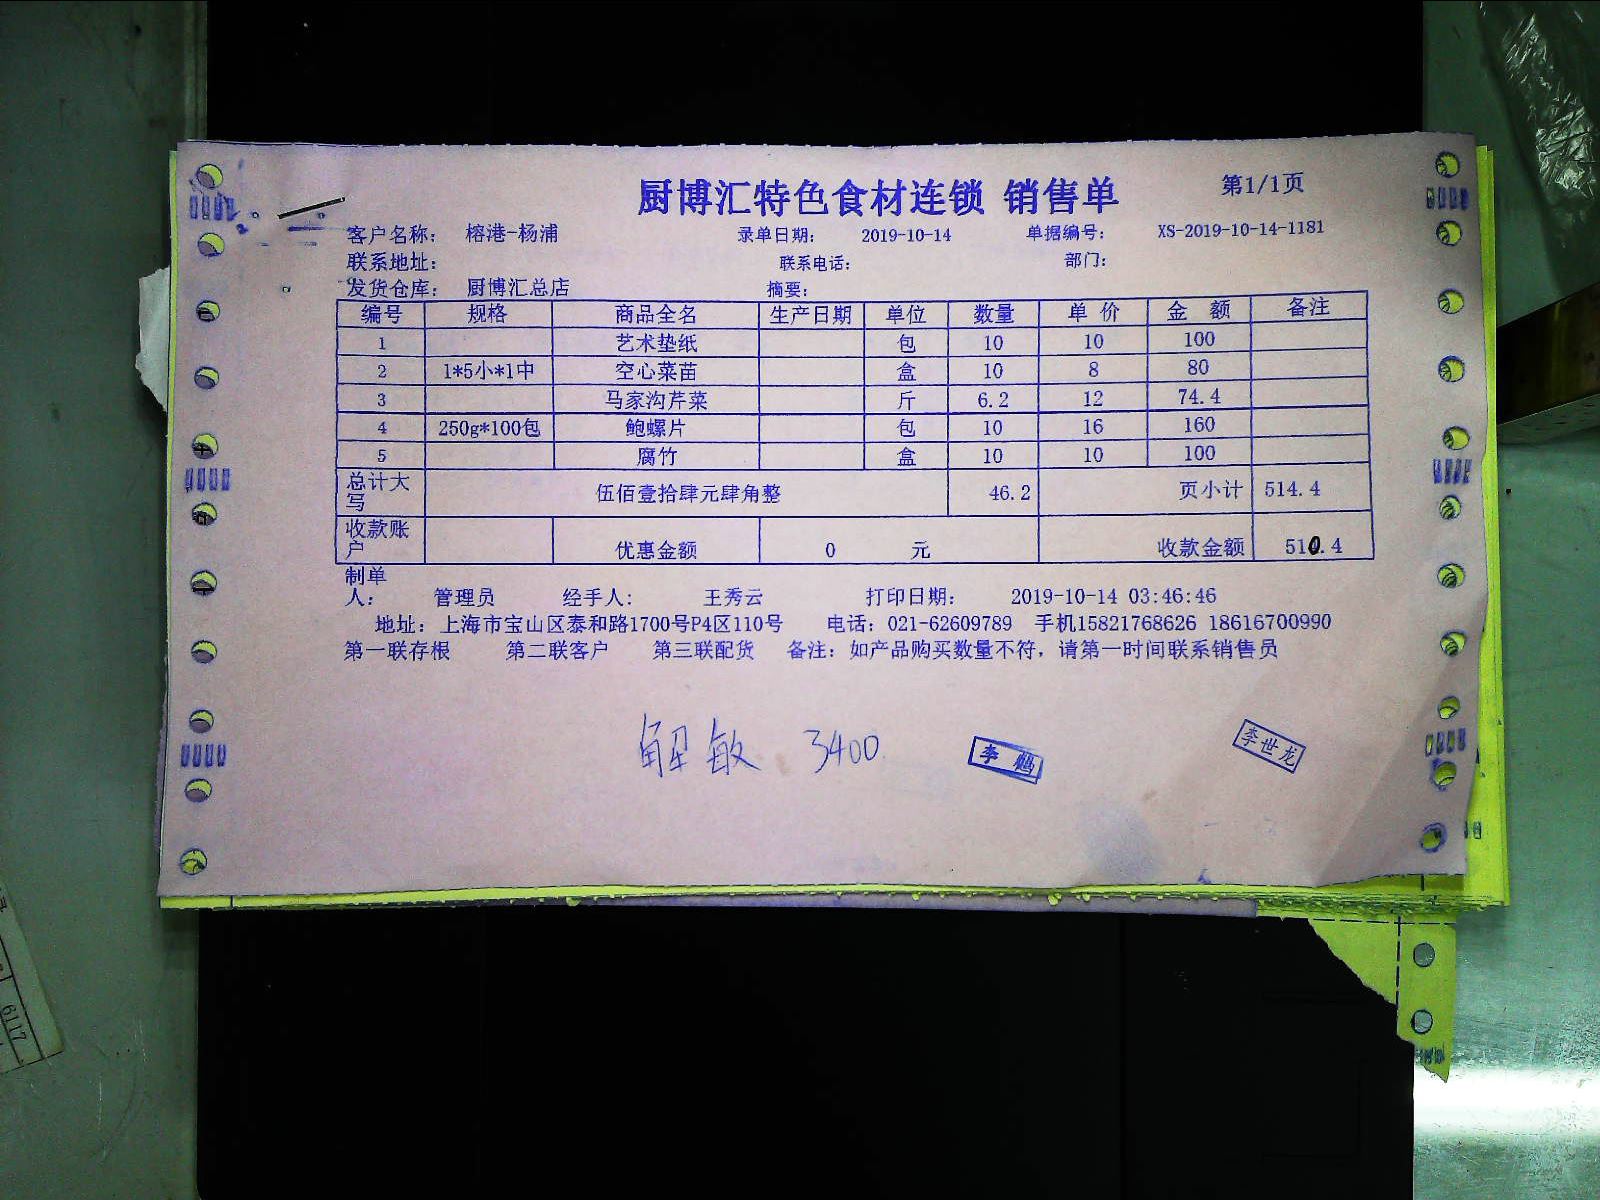 厨博汇特色食材连锁 销售单 第1/1页
客户名称： 榕港-杨浦 录单日期： 2019-10-14 单据编号： XS-2019-10-14-1181
联系地址： 联系电话： 部门：
发货仓库： 厨博汇总店 摘要：
编号 规格 商品全名 生产日期 单位 数量 单 价 金 额 备注
1 艺术垫纸 包 10 10 100
2 1*5小*1中 空心菜苗 盒 10 8 80
3 马家沟芹菜 斤 6.2 12 74.4
4 250g*100包 鲍螺片 包 10 16 160
5 腐竹 盒 10 10 100
总计大写 伍佰壹拾肆元肆角整 46.2 页小计 514.4
收款账户 优惠金额 0 元 收款金额 510.4
制单人： 管理员 经手人： 王秀云 打印日期： 2019-10-14 03:46:46
地址：上海市宝山区泰和路1700号P4区110号 电话：021-62609789 手机15821768626 18616700990
第一联存根 第二联客户 第三联配货 备注：如产品购买数量不符，请第一时间联系销售员
解敏 3400
李世龙
6117